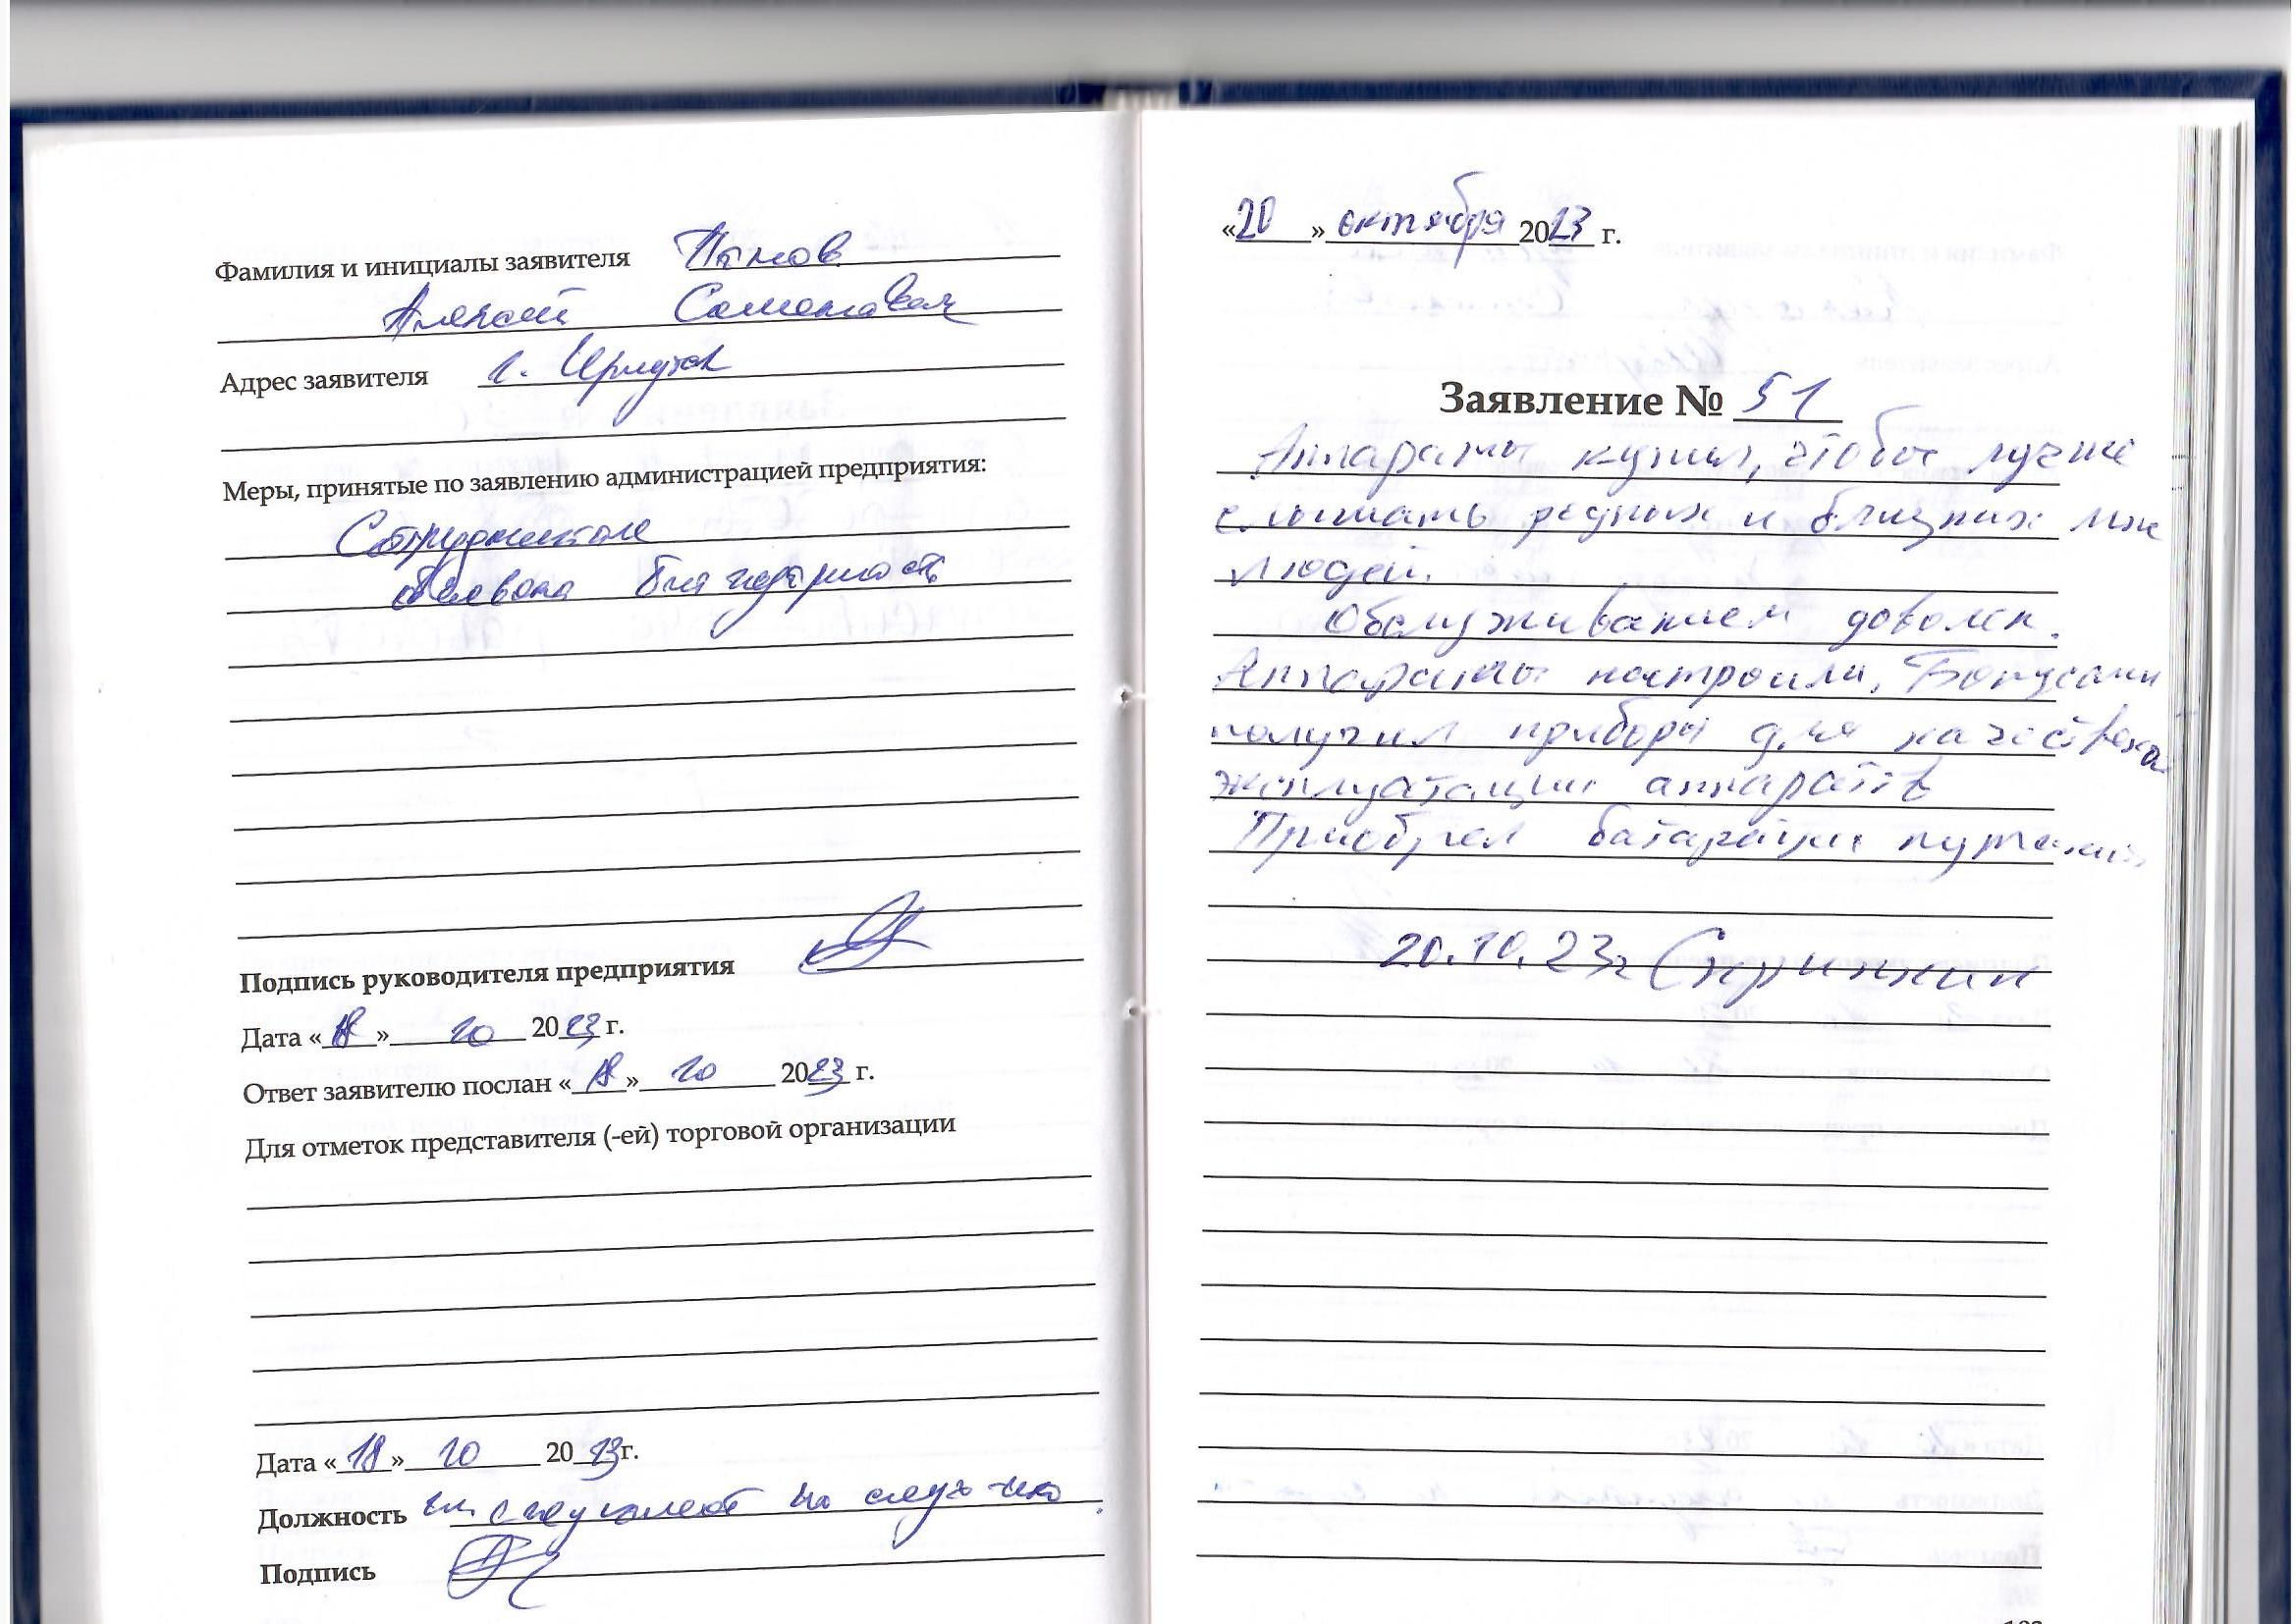 Фамилия и инициалы заявителя
Алексей
Адрес заявителя г. Иркутск
Меры, принятые по заявлению администрацией предприятия:
Сотрудникам
объявлена благодарность
Подпись руководителя предприятия
Дата «18» 10 2023 г.
Ответ заявителю послан «18» 10 2023 г.
Для отметок представителя (-ей) торговой организации
Дата «18» 10 2023 г.
Должность специалист по
Подпись
«20» октября 2023 г.
Заявление № 51
Аппараты купил, чтобы лучше
слышать родных и близких мне
людей.
Обслуживанием доволен.
Аппараты настроили, Бонусами
получил приборы для
эксплуатации аппаратов
Приобрел батарейки
20.10.23г